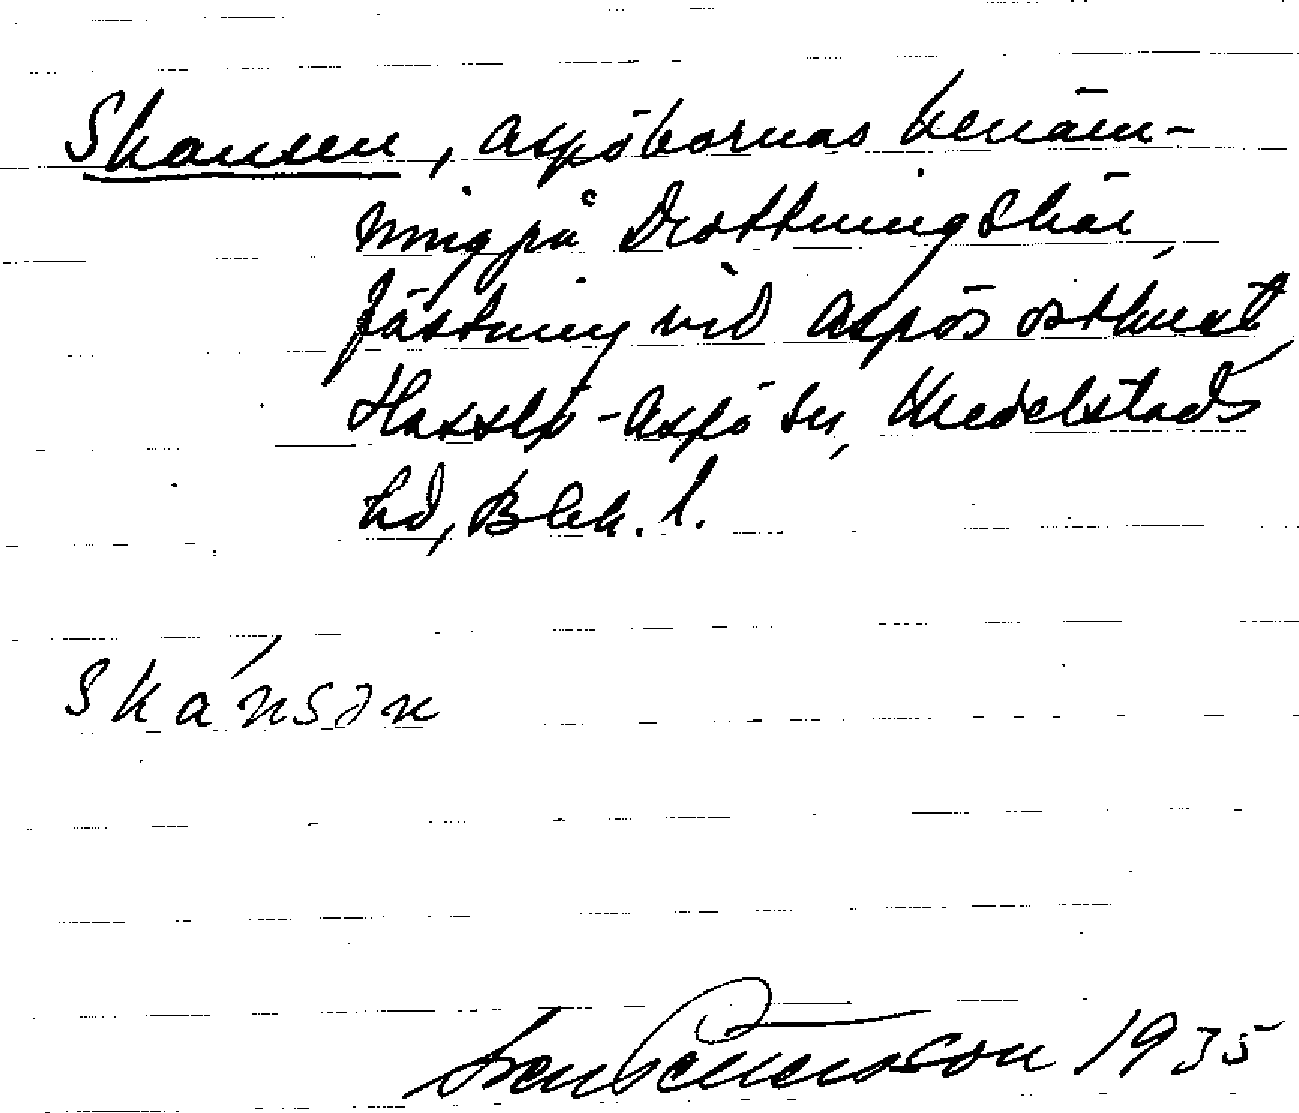 Skansen, Aspöbornas benäm-
ning på Drottningskär,
fästning vid Aspös ostkust,
Hasslö-Aspö sn, Medelstads
hd, Blek. l.
Skánsən
Sven Pettersson 1935